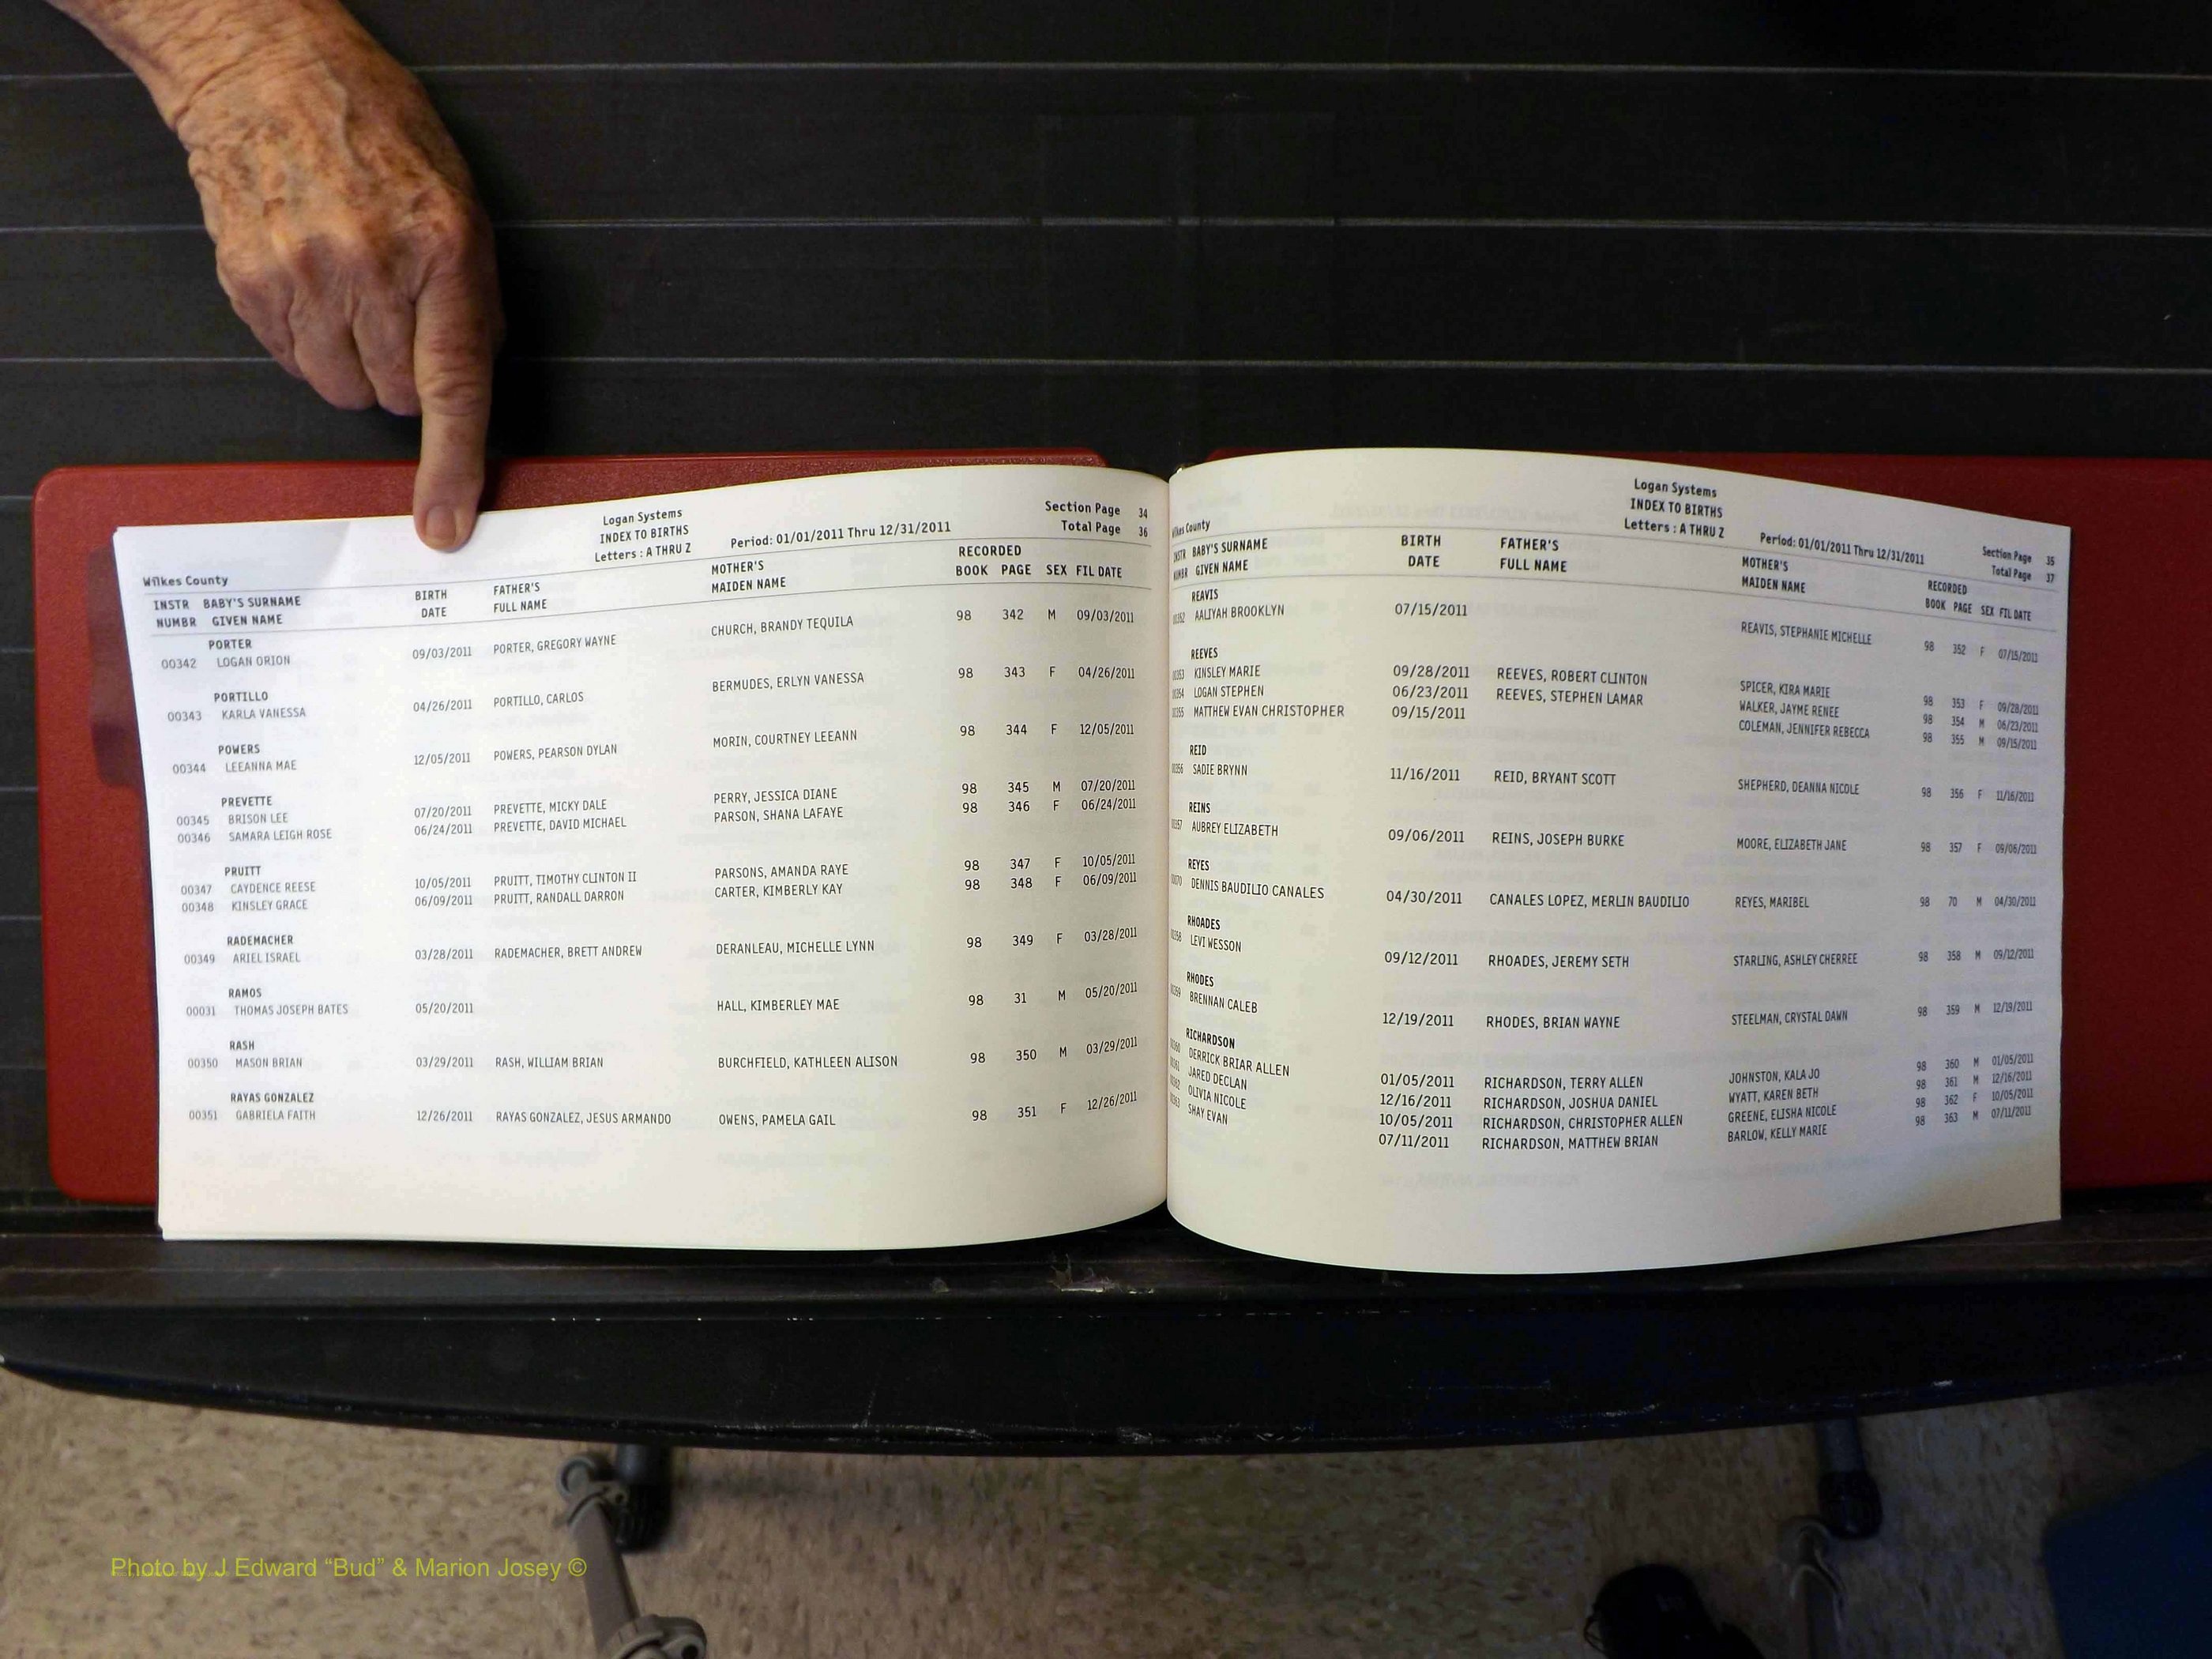 Logan Systems
INDEX TO BIRTHS
Letters : A THRU Z
Period: 01/01/2011 Thru 12/31/2011
Section Page 34
Total Page 36
Wilkes County
INSTR NUMBR BABY'S SURNAME GIVEN NAME BIRTH DATE FATHER'S FULL NAME MOTHER'S MAIDEN NAME RECORDED BOOK PAGE SEX FIL DATE
PORTER
00342 LOGAN ORION 09/03/2011 PORTER, GREGORY WAYNE CHURCH, BRANDY TEQUILA 98 342 M 09/03/2011
PORTILLO
00343 KARLA VANESSA 04/26/2011 PORTILLO, CARLOS BERMUDES, ERLYN VANESSA 98 343 F 04/26/2011
POWERS
00344 LEEANNA MAE 12/05/2011 POWERS, PEARSON DYLAN MORIN, COURTNEY LEEANN 98 344 F 12/05/2011
PREVETTE
00345 BRISON LEE 07/20/2011 PREVETTE, MICKY DALE PERRY, JESSICA DIANE 98 345 M 07/20/2011
00346 SAMARA LEIGH ROSE 06/24/2011 PREVETTE, DAVID MICHAEL PARSON, SHANA LAFAYE 98 346 F 06/24/2011
PRUITT
00347 CAYDENCE REESE 10/05/2011 PRUITT, TIMOTHY CLINTON II PARSONS, AMANDA RAYE 98 347 F 10/05/2011
00348 KINSLEY GRACE 06/09/2011 PRUITT, RANDALL DARRON CARTER, KIMBERLY KAY 98 348 F 06/09/2011
RADEMACHER
00349 ARIEL ISRAEL 03/28/2011 RADEMACHER, BRETT ANDREW DERANLEAU, MICHELLE LYNN 98 349 F 03/28/2011
RAMOS
00031 THOMAS JOSEPH BATES 05/20/2011 HALL, KIMBERLEY MAE 98 31 M 05/20/2011
RASH
00350 MASON BRIAN 03/29/2011 RASH, WILLIAM BRIAN BURCHFIELD, KATHLEEN ALISON 98 350 M 03/29/2011
RAYAS GONZALEZ
00351 GABRIELA FAITH 12/26/2011 RAYAS GONZALEZ, JESUS ARMANDO OWENS, PAMELA GAIL 98 351 F 12/26/2011
Logan Systems
INDEX TO BIRTHS
Letters : A THRU Z
Period: 01/01/2011 Thru 12/31/2011
Section Page 35
Total Page 37
County
INSTR BABY'S SURNAME GIVEN NAME BIRTH DATE FATHER'S FULL NAME MOTHER'S MAIDEN NAME RECORDED BOOK PAGE SEX FIL DATE
REAVIS
AALIYAH BROOKLYN 07/15/2011 REAVIS, STEPHANIE MICHELLE 98 352 F 07/15/2011
REEVES
KINSLEY MARIE 09/28/2011 REEVES, ROBERT CLINTON SPICER, KIRA MARIE 98 353 F 09/28/2011
LOGAN STEPHEN 06/23/2011 REEVES, STEPHEN LAMAR WALKER, JAYME RENEE 98 354 M 06/23/2011
MATTHEW EVAN CHRISTOPHER 09/15/2011 COLEMAN, JENNIFER REBECCA 98 355 M 09/15/2011
REID
SADIE BRYNN 11/16/2011 REID, BRYANT SCOTT SHEPHERD, DEANNA NICOLE 98 356 F 11/16/2011
REINS
AUBREY ELIZABETH 09/06/2011 REINS, JOSEPH BURKE MOORE, ELIZABETH JANE 98 357 F 09/06/2011
REYES
DENNIS BAUDILIO CANALES 04/30/2011 CANALES LOPEZ, MERLIN BAUDILIO REYES, MARIBEL 98 70 M 04/30/2011
RHOADES
LEVI WESSON 09/12/2011 RHOADES, JEREMY SETH STARLING, ASHLEY CHERREE 98 358 M 09/12/2011
RHODES
BRENNAN CALEB 12/19/2011 RHODES, BRIAN WAYNE STEELMAN, CRYSTAL DAWN 98 359 M 12/19/2011
RICHARDSON
DERRICK BRIAR ALLEN 01/05/2011 RICHARDSON, TERRY ALLEN JOHNSTON, KALA JO 98 360 M 01/05/2011
JARED DECLAN 12/16/2011 RICHARDSON, JOSHUA DANIEL WYATT, KAREN BETH 98 361 M 12/16/2011
OLIVIA NICOLE 10/05/2011 RICHARDSON, CHRISTOPHER ALLEN GREENE, ELISHA NICOLE 98 362 F 10/05/2011
SHAY EVAN 07/11/2011 RICHARDSON, MATTHEW BRIAN BARLOW, KELLY MARIE 98 363 M 07/11/2011
Photo by J Edward “Bud” & Marion Josey ©